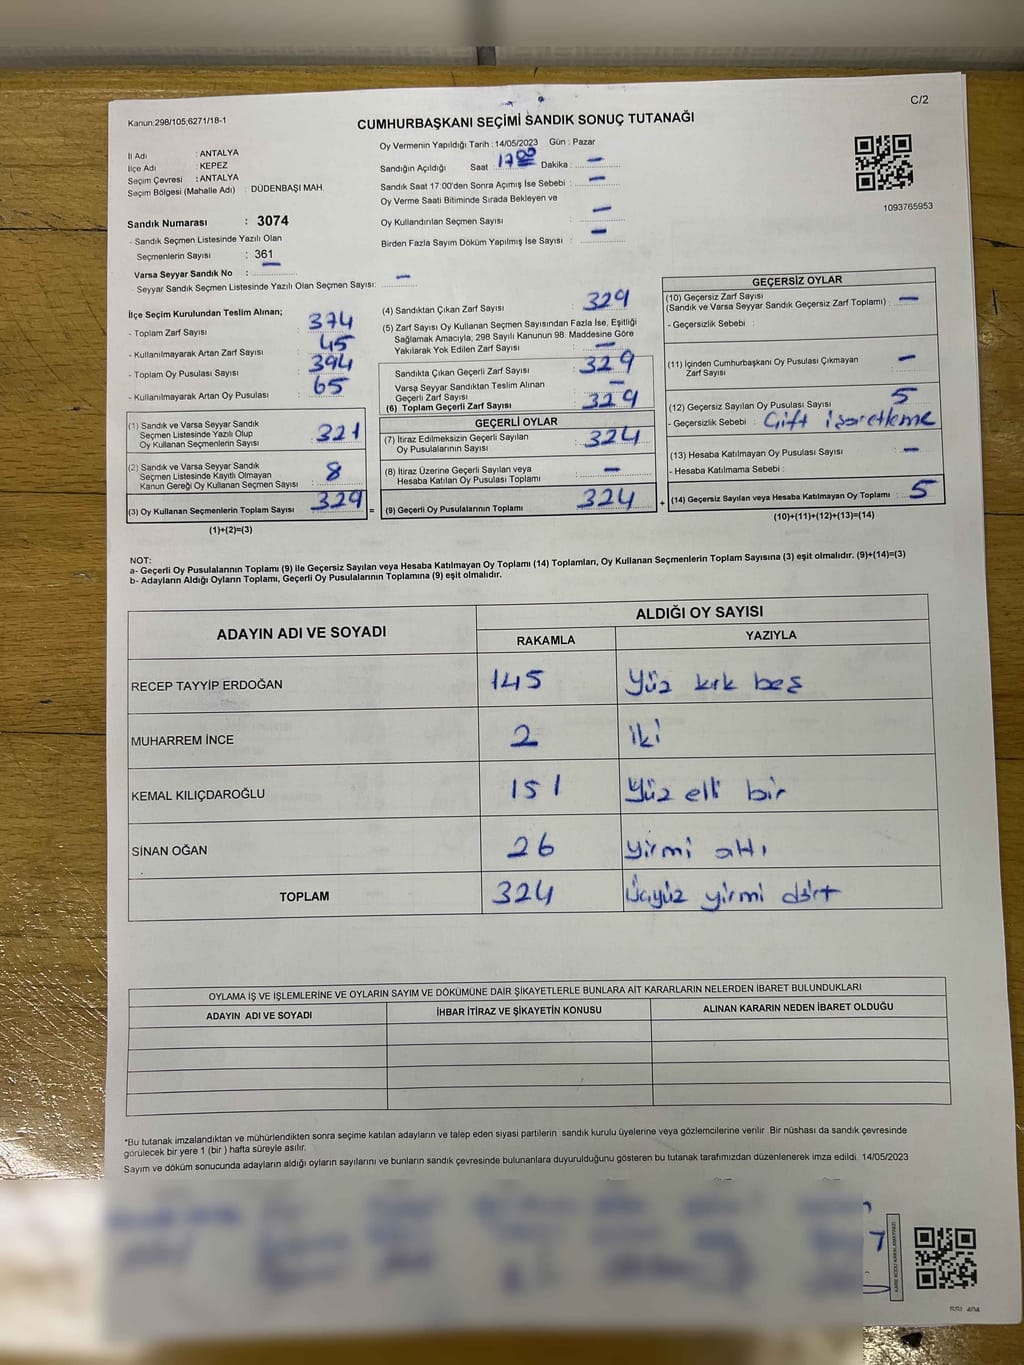 Kanun:298/105;6271/18-1
C/2
CUMHURBAŞKANI SEÇİMİ SANDIK SONUÇ TUTANAĞI
İl Adı : ANTALYA
İlçe Adı : KEPEZ
Seçim Çevresi : ANTALYA
Seçim Bölgesi (Mahalle Adı) : DÜDENBAŞI MAH.
Oy Vermenin Yapıldığı Tarih : 14/05/2023 Gün : Pazar
Sandığın Açıldığı Saat : 17 00 Dakika : —
Sandık Saat 17:00'den Sonra Açımış İse Sebebi : —
Oy Verme Saati Bitiminde Sırada Bekleyen ve
Oy Kullandırılan Seçmen Sayısı : —
Birden Fazla Sayım Döküm Yapılmış İse Sayısı : —
1093765953
Sandık Numarası : 3074
- Sandık Seçmen Listesinde Yazılı Olan
Seçmenlerin Sayısı : 361
Varsa Seyyar Sandık No : —
Seyyar Sandık Seçmen Listesinde Yazılı Olan Seçmen Sayısı: —
İlçe Seçim Kurulundan Teslim Alınan;
- Toplam Zarf Sayısı : 374
- Kullanılmayarak Artan Zarf Sayısı : 45
- Toplam Oy Pusulası Sayısı : 394
- Kullanılmayarak Artan Oy Pusulası : 65
(1) Sandık ve Varsa Seyyar Sandık
Seçmen Listesinde Yazılı Olup
Oy Kullanan Seçmenlerin Sayısı : 321
(2) Sandık ve Varsa Seyyar Sandık
Seçmen Listesinde Kayıtlı Olmayan
Kanun Gereği Oy Kullanan Seçmen Sayısı : 8
(3) Oy Kullanan Seçmenlerin Toplam Sayısı : 329 =
(1)+(2)=(3)
(4) Sandıktan Çıkan Zarf Sayısı : 329
(5) Zarf Sayısı Oy Kullanan Seçmen Sayısından Fazla İse, Eşitliği
Sağlamak Amacıyla; 298 Sayılı Kanunun 98. Maddesine Göre
Yakılarak Yok Edilen Zarf Sayısı : —
Sandıkta Çıkan Geçerli Zarf Sayısı : 329
Varsa Seyyar Sandıktan Teslim Alınan
Geçerli Zarf Sayısı : —
(6) Toplam Geçerli Zarf Sayısı : 329
GEÇERLİ OYLAR
(7) İtiraz Edilmeksizin Geçerli Sayılan
Oy Pusulalarının Sayısı : 324
(8) İtiraz Üzerine Geçerli Sayılan veya
Hesaba Katılan Oy Pusulası Toplamı : —
(9) Geçerli Oy Pusulalarının Toplamı : 324 +
GEÇERSİZ OYLAR
(10) Geçersiz Zarf Sayısı
(Sandık ve Varsa Seyyar Sandık Geçersiz Zarf Toplamı) : —
- Geçersizlik Sebebi :
(11) İçinden Cumhurbaşkanı Oy Pusulası Çıkmayan
Zarf Sayısı : —
(12) Geçersiz Sayılan Oy Pusulası Sayısı : 5
- Geçersizlik Sebebi : Çift işaretleme
(13) Hesaba Katılmayan Oy Pusulası Sayısı : —
- Hesaba Katılmama Sebebi :
(14) Geçersiz Sayılan veya Hesaba Katılmayan Oy Toplamı : 5
(10)+(11)+(12)+(13)=(14)
NOT:
a- Geçerli Oy Pusulalarının Toplamı (9) ile Geçersiz Sayılan veya Hesaba Katılmayan Oy Toplamı (14) Toplamları, Oy Kullanan Seçmenlerin Toplam Sayısına (3) eşit olmalıdır. (9)+(14)=(3)
b- Adayların Aldığı Oyların Toplamı, Geçerli Oy Pusulalarının Toplamına (9) eşit olmalıdır.
ADAYIN ADI VE SOYADI
ALDIĞI OY SAYISI
RAKAMLA YAZIYLA
RECEP TAYYİP ERDOĞAN 145 Yüz kırk beş
MUHARREM İNCE 2 iki
KEMAL KILIÇDAROĞLU 151 Yüz elli bir
SİNAN OĞAN 26 yirmi altı
TOPLAM 324 Üçyüz yirmi dört
OYLAMA İŞ VE İŞLEMLERİNE VE OYLARIN SAYIM VE DÖKÜMÜNE DAİR ŞİKAYETLERLE BUNLARA AİT KARARLARIN NELERDEN İBARET BULUNDUKLARI
ADAYIN ADI VE SOYADI İHBAR İTİRAZ VE ŞİKAYETİN KONUSU ALINAN KARARIN NEDEN İBARET OLDUĞU
*Bu tutanak imzalandıktan ve mühürlendikten sonra seçime katılan adayların ve talep eden siyasi partilerin sandık kurulu üyelerine veya gözlemcilerine verilir .Bir nüshası da sandık çevresinde
görülecek bir yere 1 (bir ) hafta süreyle asılır.
Sayım ve döküm sonucunda adayların aldığı oyların sayılarını ve bunların sandık çevresinde bulunanlara duyurulduğunu gösteren bu tutanak tarafımızdan düzenlenerek imza edildi. 14/05/2023